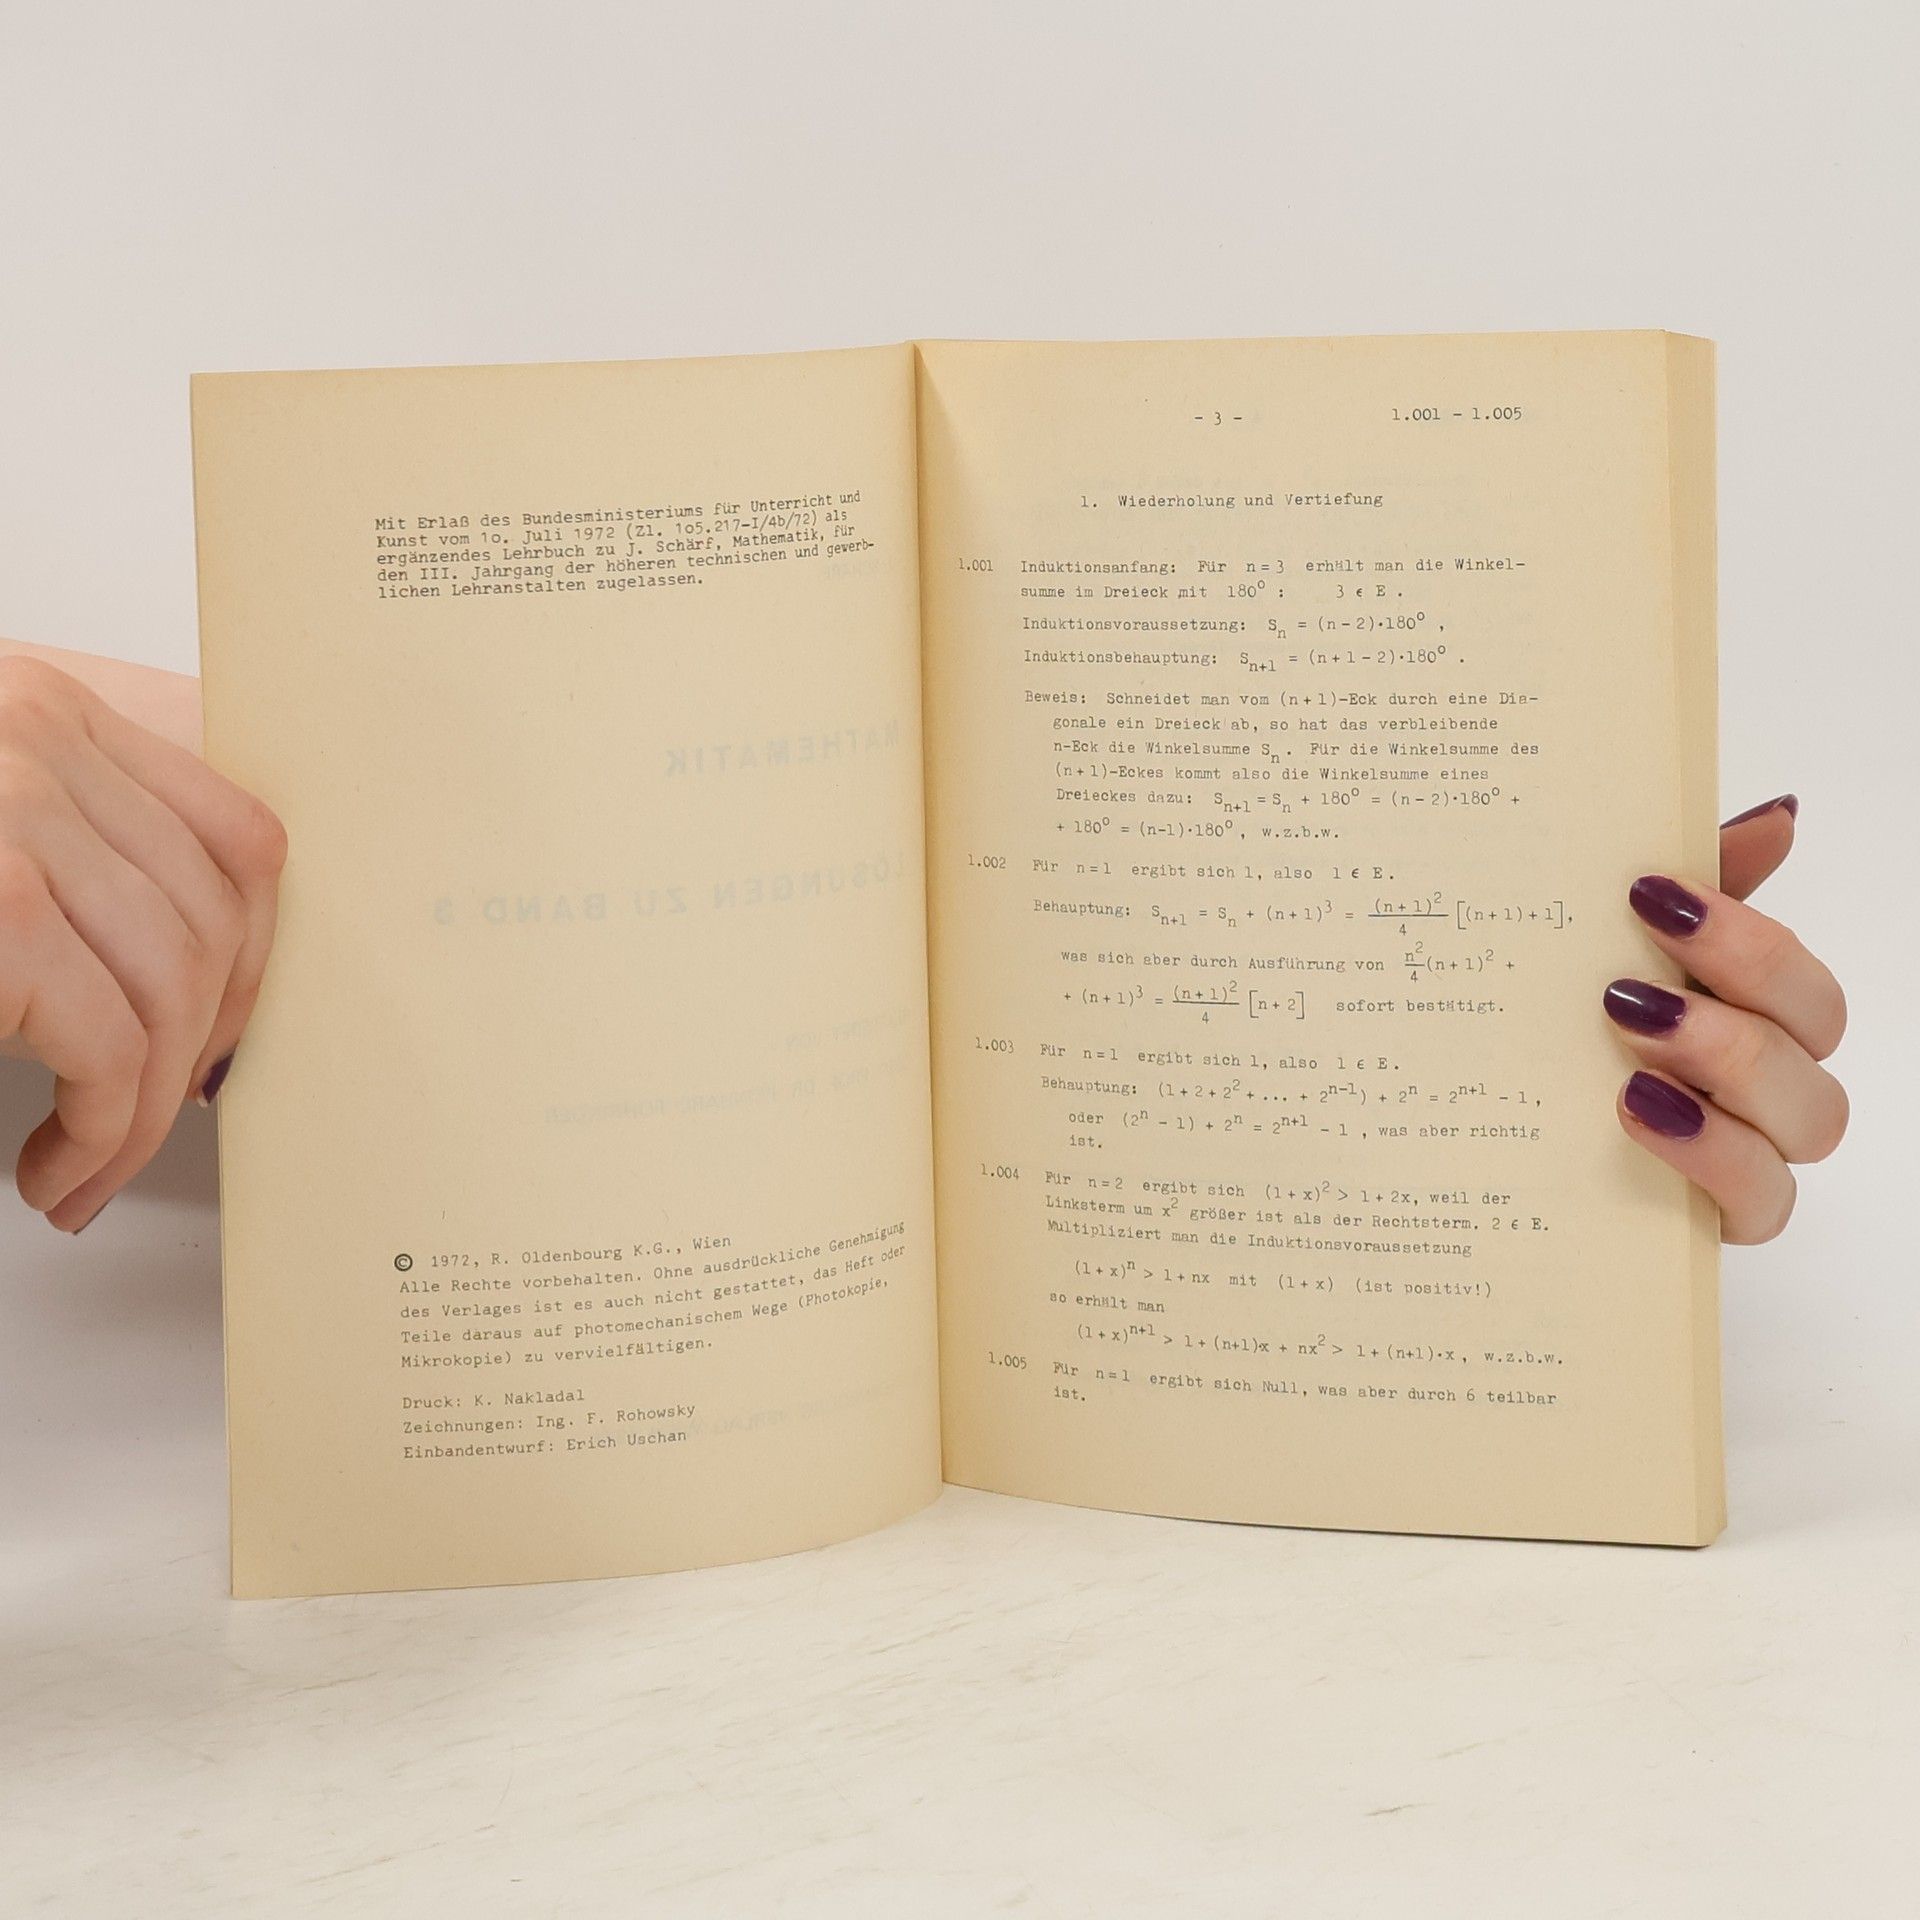 Mit Erlaß des Bundesministeriums für Unterricht und
Kunst vom 1o. Juli 1972 (Zl. 1o5.217-I/4b/72) als
ergänzendes Lehrbuch zu J. Schärf, Mathematik, für
den III. Jahrgang der höheren technischen und gewerb-
lichen Lehranstalten zugelassen.
MATHEMATIK
LÖSUNGEN ZU BAND 3
© 1972, R. Oldenbourg K.G., Wien
Alle Rechte vorbehalten. Ohne ausdrückliche Genehmigung
des Verlages ist es auch nicht gestattet, das Heft oder
Teile daraus auf photomechanischem Wege (Photokopie,
Mikrokopie) zu vervielfältigen.
Druck: K. Nakladal
Zeichnungen: Ing. F. Rohowsky
Einbandentwurf: Erich Uschan
- 3 - 1.001 - 1.005
1. Wiederholung und Vertiefung
1.001 Induktionsanfang: Für n = 3 erhält man die Winkel-
summe im Dreieck mit 180° : 3 ϵ E .
Induktionsvoraussetzung: S_n = (n - 2)·180° ,
Induktionsbehauptung: S_{n+1} = (n + 1 - 2)·180° .
Beweis: Schneidet man vom (n + 1)-Eck durch eine Dia-
gonale ein Dreieck ab, so hat das verbleibende
n-Eck die Winkelsumme S_n . Für die Winkelsumme des
(n + 1)-Eckes kommt also die Winkelsumme eines
Dreieckes dazu: S_{n+1} = S_n + 180° = (n - 2)·180° +
+ 180° = (n-1)·180° , w.z.b.w.
1.002 Für n = 1 ergibt sich 1, also 1 ϵ E .
Behauptung: S_{n+1} = S_n + (n + 1)³ = (n + 1)²/4 [(n + 1) + 1],
was sich aber durch Ausführung von n²/4 (n + 1)² +
+ (n + 1)³ = (n + 1)²/4 [n + 2] sofort bestätigt.
1.003 Für n = 1 ergibt sich 1, also 1 ϵ E .
Behauptung: (1 + 2 + 2² + ... + 2^{n-1}) + 2^n = 2^{n+1} - 1 ,
oder (2^n - 1) + 2^n = 2^{n+1} - 1 , was aber richtig
ist.
1.004 Für n = 2 ergibt sich (1 + x)² > 1 + 2x, weil der
Linksterm um x² größer ist als der Rechtsterm. 2 ϵ E.
Multipliziert man die Induktionsvoraussetzung
(1 + x)^n > 1 + nx mit (1 + x) (ist positiv!)
so erhält man
(1 + x)^{n+1} > 1 + (n+1)·x + nx² > 1 + (n+1)·x , w.z.b.w.
1.005 Für n = 1 ergibt sich Null, was aber durch 6 teilbar
ist.